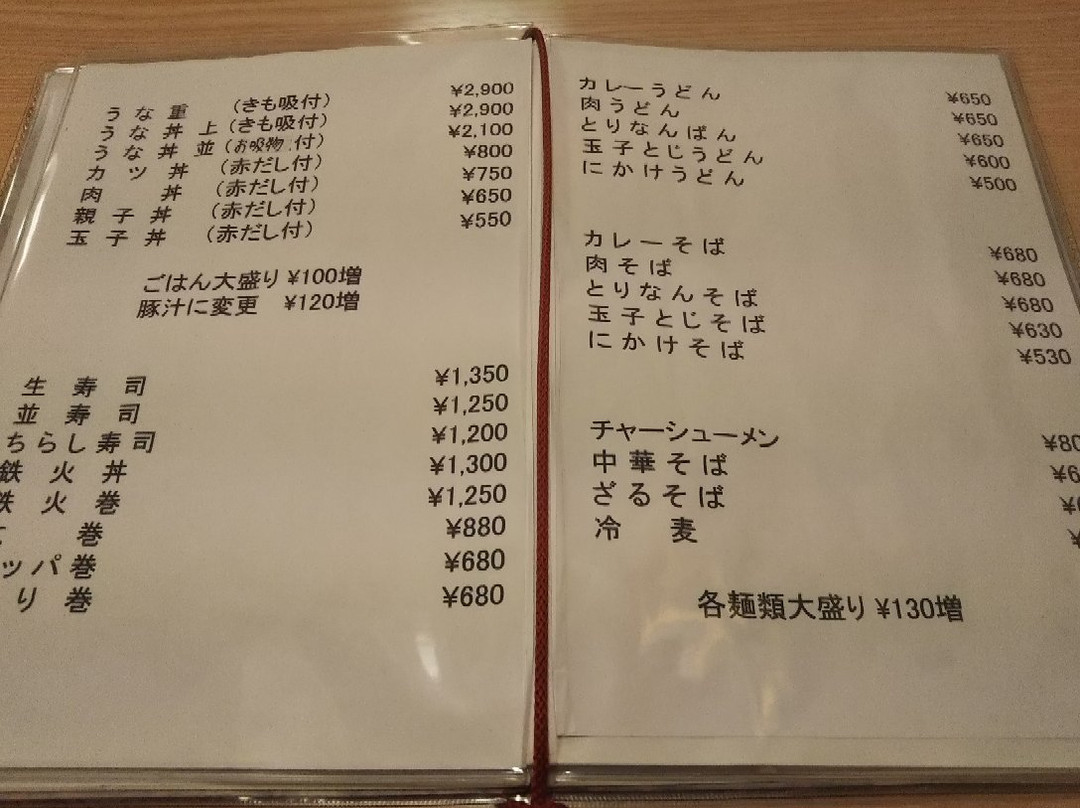 うな重 (きも吸付) ¥2,900
うな丼上 (きも吸付) ¥2,900
うな丼並 (お吸物付) ¥2,100
カツ丼 (赤だし付) ¥800
肉丼 (赤だし付) ¥750
親子丼 (赤だし付) ¥650
玉子丼 (赤だし付) ¥550
ごはん大盛り ¥100増
豚汁に変更 ¥120増
生寿司 ¥1,350
並寿司 ¥1,250
ちらし寿司 ¥1,200
鉄火丼 ¥1,300
鉄火巻 ¥1,250
巻 ¥880
ッパ巻 ¥680
り巻 ¥680
カレーうどん ¥650
肉うどん ¥650
とりなんばん ¥650
玉子とじうどん ¥600
にかけうどん ¥500
カレーそば ¥680
肉そば ¥680
とりなんそば ¥680
玉子とじそば ¥630
にかけそば ¥530
チャーシューメン ¥80
中華そば ¥6
ざるそば ¥
冷麦 ¥
各麺類大盛り ¥130増